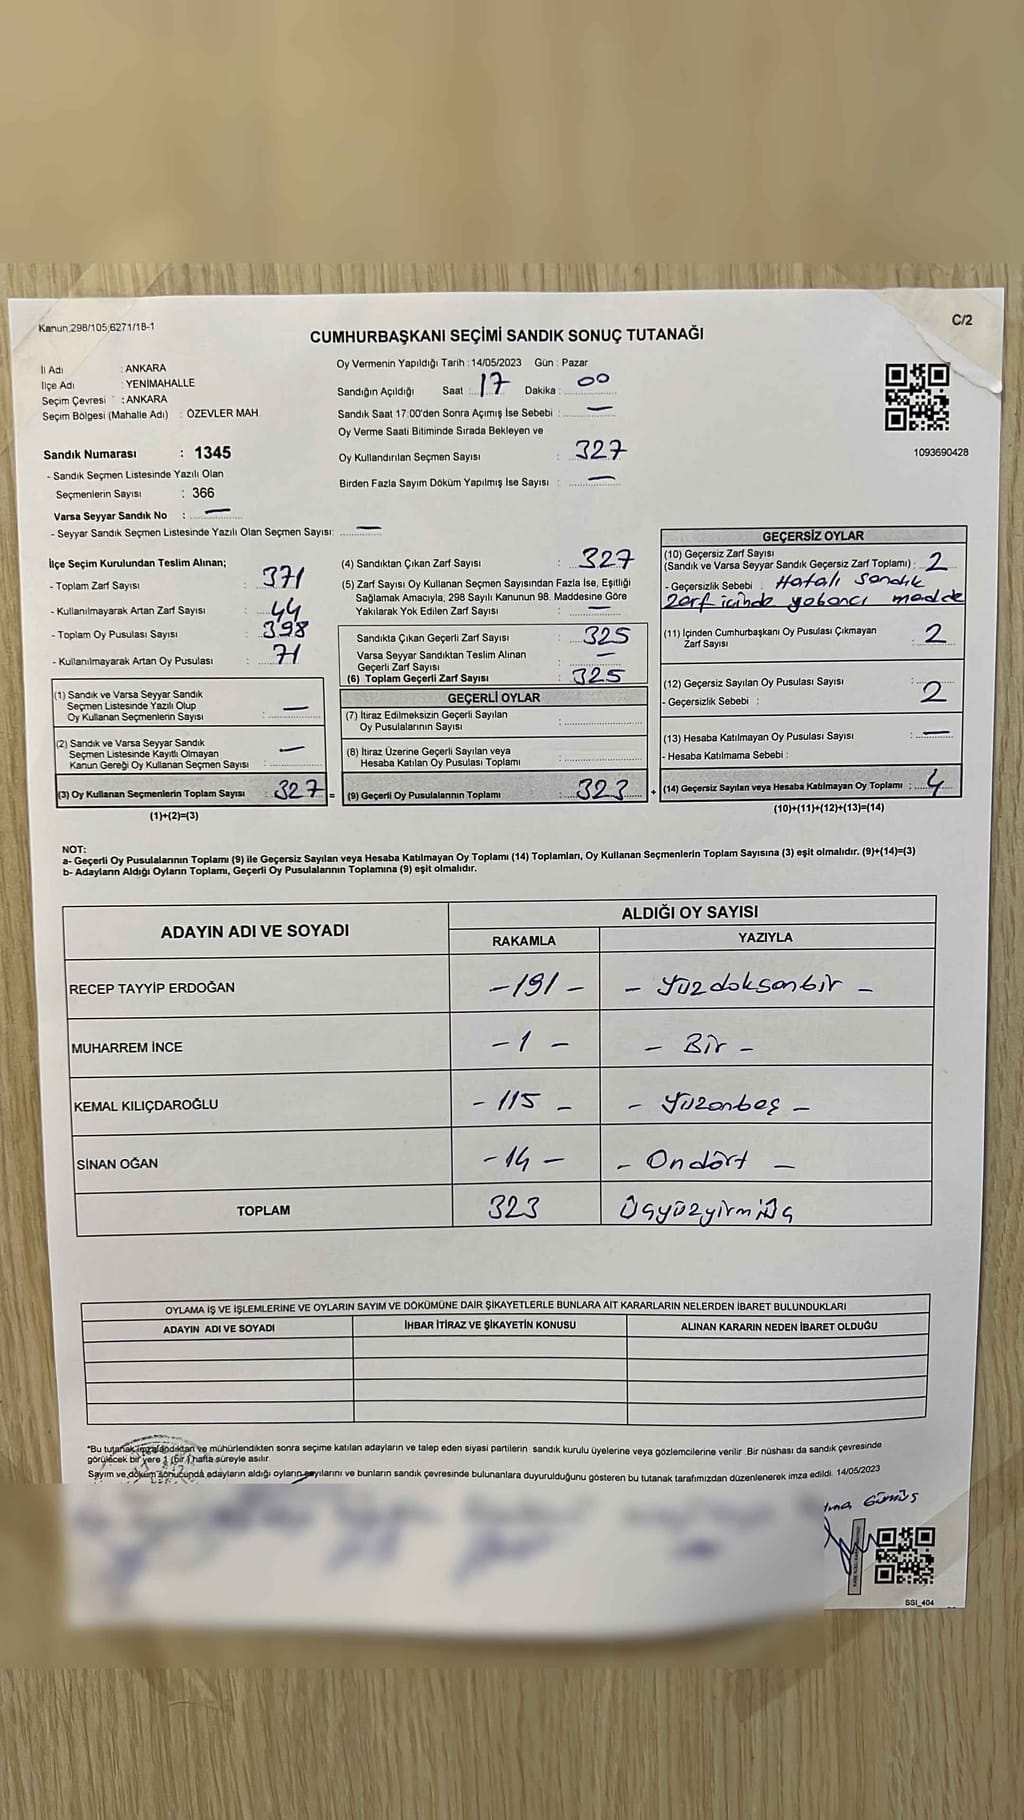 Kanun;298/105;6271/18-1
C/2
CUMHURBAŞKANI SEÇİMİ SANDIK SONUÇ TUTANAĞI
İl Adı : ANKARA
İlçe Adı : YENİMAHALLE
Seçim Çevresi : ANKARA
Seçim Bölgesi (Mahalle Adı) : ÖZEVLER MAH.
Sandık Numarası : 1345
- Sandık Seçmen Listesinde Yazılı Olan
Seçmenlerin Sayısı : 366
Varsa Seyyar Sandık No : —
- Seyyar Sandık Seçmen Listesinde Yazılı Olan Seçmen Sayısı: —
Oy Vermenin Yapıldığı Tarih : 14/05/2023 Gün : Pazar
Sandığın Açıldığı Saat : 17 Dakika : 00
Sandık Saat 17:00'den Sonra Açımış İse Sebebi : —
Oy Verme Saati Bitiminde Sırada Bekleyen ve
Oy Kullandırılan Seçmen Sayısı : 327
Birden Fazla Sayım Döküm Yapılmış İse Sayısı : —
1093690428
İlçe Seçim Kurulundan Teslim Alınan;
- Toplam Zarf Sayısı : 371
- Kullanılmayarak Artan Zarf Sayısı : 44
- Toplam Oy Pusulası Sayısı : 398
- Kullanılmayarak Artan Oy Pusulası : 71
(1) Sandık ve Varsa Seyyar Sandık
Seçmen Listesinde Yazılı Olup
Oy Kullanan Seçmenlerin Sayısı : —
(2) Sandık ve Varsa Seyyar Sandık
Seçmen Listesinde Kayıtlı Olmayan
Kanun Gereği Oy Kullanan Seçmen Sayısı : —
(3) Oy Kullanan Seçmenlerin Toplam Sayısı : 327 =
(1)+(2)=(3)
(4) Sandıktan Çıkan Zarf Sayısı : 327
(5) Zarf Sayısı Oy Kullanan Seçmen Sayısından Fazla İse, Eşitliği
Sağlamak Amacıyla, 298 Sayılı Kanunun 98. Maddesine Göre
Yakılarak Yok Edilen Zarf Sayısı : —
Sandıkta Çıkan Geçerli Zarf Sayısı : 325
Varsa Seyyar Sandıktan Teslim Alınan
Geçerli Zarf Sayısı : —
(6) Toplam Geçerli Zarf Sayısı : 325
GEÇERLİ OYLAR
(7) İtiraz Edilmeksizin Geçerli Sayılan
Oy Pusulalarının Sayısı :
(8) İtiraz Üzerine Geçerli Sayılan veya
Hesaba Katılan Oy Pusulası Toplamı :
(9) Geçerli Oy Pusulalarının Toplamı : 323 +
GEÇERSİZ OYLAR
(10) Geçersiz Zarf Sayısı
(Sandık ve Varsa Seyyar Sandık Geçersiz Zarf Toplamı) : 2
- Geçersizlik Sebebi : Hatalı sandık
zarf içinde yabancı madde
(11) İçinden Cumhurbaşkanı Oy Pusulası Çıkmayan
Zarf Sayısı : 2
(12) Geçersiz Sayılan Oy Pusulası Sayısı : 2
- Geçersizlik Sebebi :
(13) Hesaba Katılmayan Oy Pusulası Sayısı : —
- Hesaba Katılmama Sebebi :
(14) Geçersiz Sayılan veya Hesaba Katılmayan Oy Toplamı : 4
(10)+(11)+(12)+(13)=(14)
NOT:
a- Geçerli Oy Pusulalarının Toplamı (9) ile Geçersiz Sayılan veya Hesaba Katılmayan Oy Toplamı (14) Toplamları, Oy Kullanan Seçmenlerin Toplam Sayısına (3) eşit olmalıdır. (9)+(14)=(3)
b- Adayların Aldığı Oyların Toplamı, Geçerli Oy Pusulalarının Toplamına (9) eşit olmalıdır.
ADAYIN ADI VE SOYADI
ALDIĞI OY SAYISI
RAKAMLA YAZIYLA
RECEP TAYYİP ERDOĞAN -191- - Yüzdoksanbir -
MUHARREM İNCE -1- - Bir -
KEMAL KILIÇDAROĞLU -115- - Yüzonbeş -
SİNAN OĞAN -14- - Ondört -
TOPLAM 323 Üçyüzyirmiüç
OYLAMA İŞ VE İŞLEMLERİNE VE OYLARIN SAYIM VE DÖKÜMÜNE DAİR ŞİKAYETLERLE BUNLARA AİT KARARLARIN NELERDEN İBARET BULUNDUKLARI
ADAYIN ADI VE SOYADI İHBAR İTİRAZ VE ŞİKAYETİN KONUSU ALINAN KARARIN NEDEN İBARET OLDUĞU
*Bu tutanak imzalandıktan ve mühürlendikten sonra seçime katılan adayların ve talep eden siyasi partilerin sandık kurulu üyelerine veya gözlemcilerine verilir .Bir nüshası da sandık çevresinde
görülecek bir yere 1 (bir) hafta süreyle asılır.
Sayım ve döküm sonucunda adayların aldığı oyların sayılarını ve bunların sandık çevresinde bulunanlara duyurulduğunu gösteren bu tutanak tarafımızdan düzenlenerek imza edildi. 14/05/2023
Gümüş
SSI_404